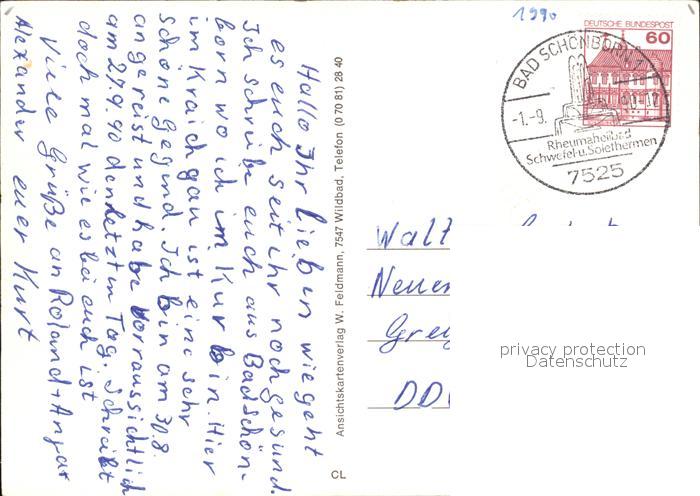 1990
DEUTSCHE BUNDESPOST
60
BAD SCHÖNBORN 1
-1.-9.
Rheumaheilbad
Schwefel-u.Solethermen
7525
Hallo Ihr lieben wie geht
es euch seit ihr noch gesund.
Ich schreibe euch aus Badschön-
born wo ich im Kur bin. Hier
im Kraichgau ist eine sehr
schöne Gegend. Ich bin am 30 8.
angereist und habe vorraussichtlich
am 27.9.90 den letzten Tag. Schreibt
doch mal wie es bei euch ist
Viele Grüße an Roland +
Alexander euer Kurt
Ansichtskartenverlag W. Feldmann, 7547 Wildbad, Telefon (0 70 81) 28 40
CL
Walt
Neue
DD
privacy protection
Datenschutz